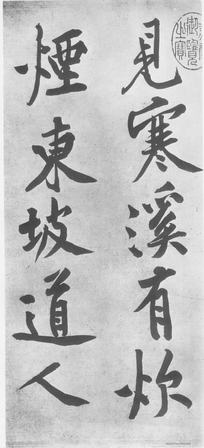 見寒溪有炊
煙東坡道人